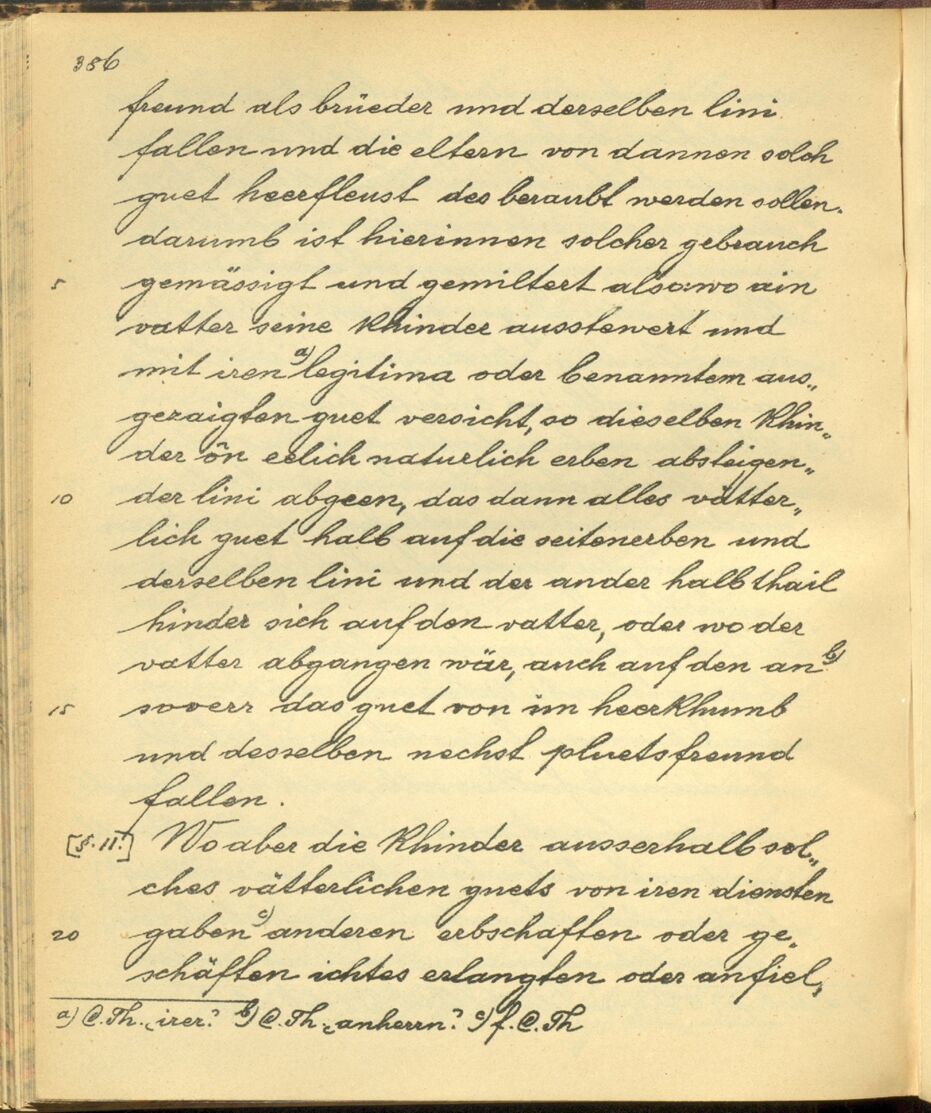 386
freund als brüeder und derselben lini
fallen und die eltern von dannen solch
guet heerfleust des beraubt werden sollen.
darumb ist hierinnen solcher gebrauch
5 gemässigt und gemiltert also: wo ain
vatter seine khinder aussteuert und
mit iren a) legitima oder benanntem aus„
gezaigten guet versicht, so dieselben khin„
der ôn eelich naturlich erben absteigen„
10 der lini abgeen, das dann alles vätter„
lich guet halb auf die seitenerben und
derselben lini und der ander halb thail
hinder sich auf den vatter, oder wo der
vatter abgangen wär, auch auf den an b)
15 soverr das guet von im heerkhumb
und desselben nechst pluetsfreund
fallen.
[§. 11.] Wo aber die khinder ausserhalb sol„
ches vätterlichen guets von iren diensten
20 gaben c) anderen erbschaften oder ge„
schäften ichtes erlangten oder anfiel„
a) C. Th. „irer“ b) C. Th. „anherrn“ c) f. C. Th